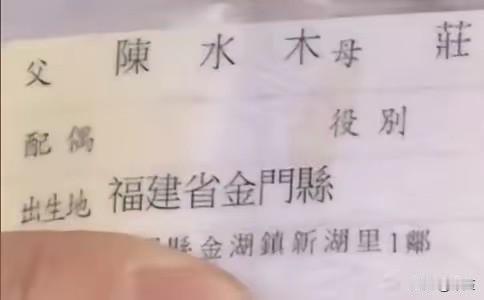 父 陳水木 母 莊
配偶 役別
出生地 福建省金門縣
縣金湖鎮新湖里1鄰